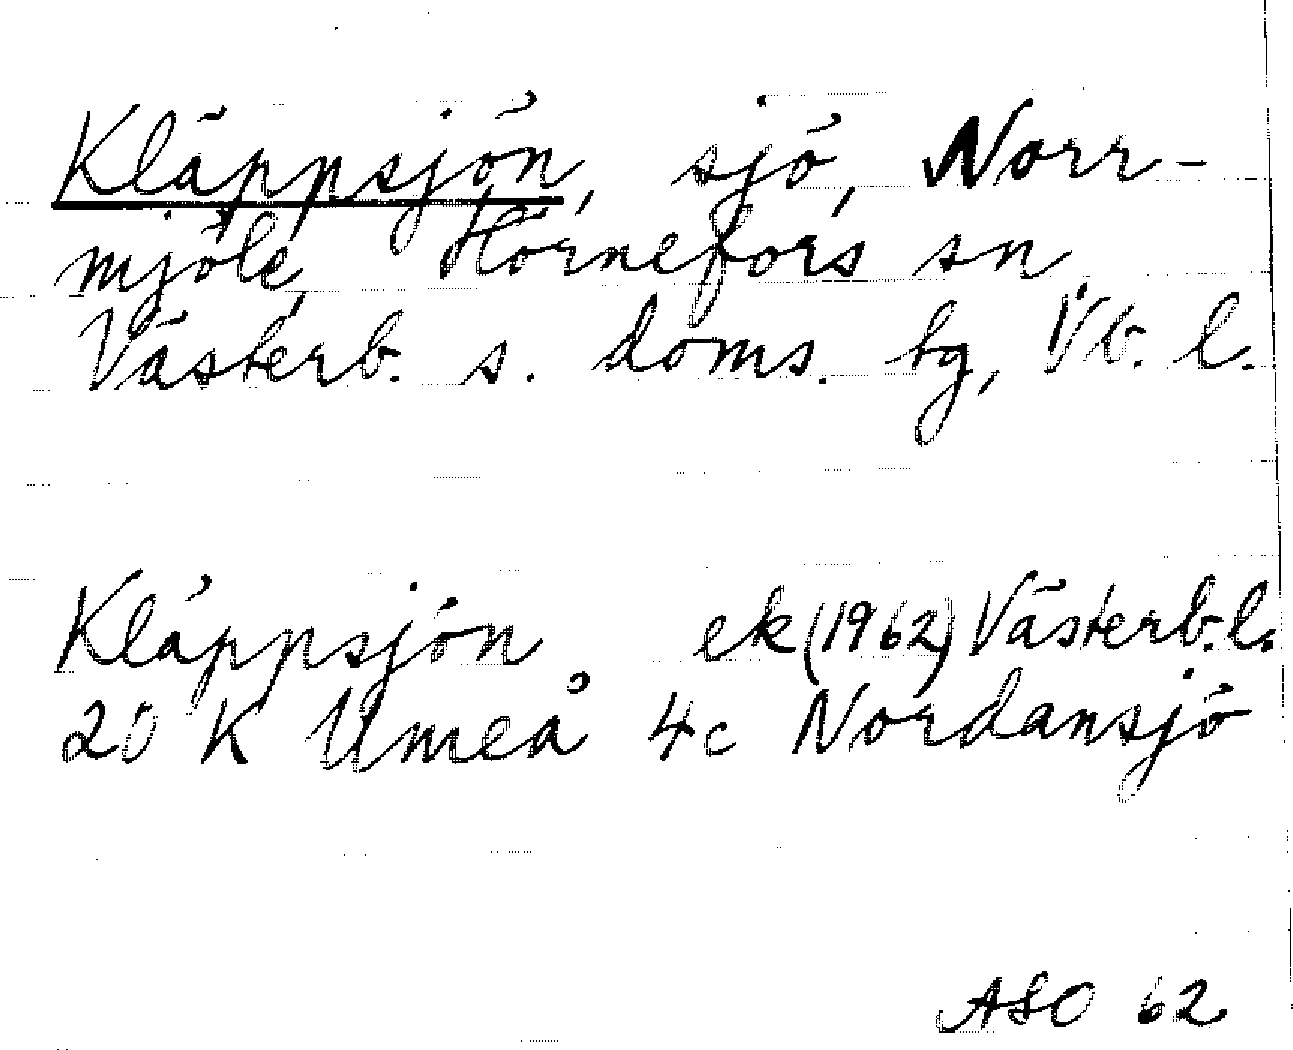 Kläppsjön, sjö, Norr-
mjöle, Hörnefors sn
Västerb. s. doms. tg, Vb. l.
Kläppsjön ek (1962) Västerb. l.
20 K Umeå 4c Nordansjö
ASO 62